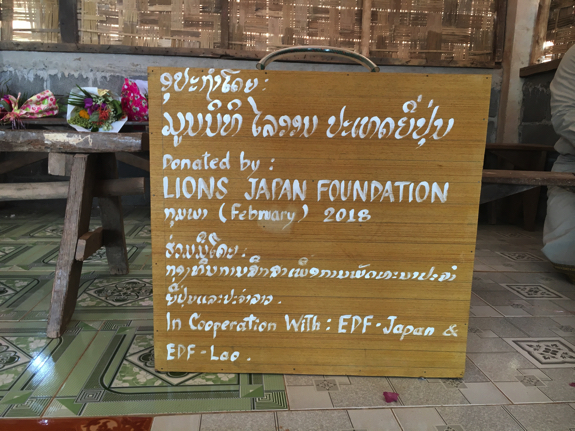 ອຸປະຖໍາໂດຍ:
ມູນນິທິ ໄລອອນ ປະເທດຍີ່ປຸ່ນ
Donated by :
LIONS JAPAN FOUNDATION
ກຸມພາ (February) 2018
ຮ່ວມມືໂດຍ:
ກອງທຶນການສຶກສາເພື່ອການພັດທະນາປະຈໍາ
ຍີ່ປຸ່ນແລະປະຈໍາລາວ.
In Cooperation With: EDF-Japan &
EDF-Lao.